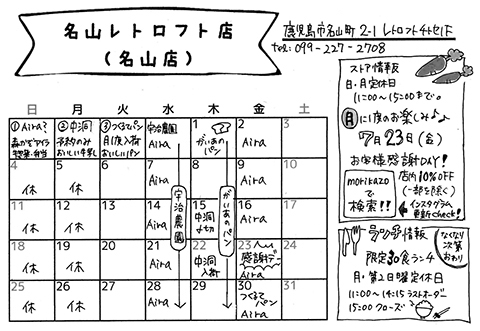 名山レトロフト店
(名山店)
鹿児島市名山町2-1 レトロフトチトセ1F
tel: 099-227-2708
日 月 火 水 木 金 土
①Aira?
森かぞアイラ
惣菜・弁当
②中洞
予約のみ
おいしい牛乳
③つくるてパン
月1度入荷
おいしいパン
宇治農園
Aira
1
がいあの
パン
2
Aira
3
4
休
5
休
6
休
7
Aira
8
Aira
9
Aira
10
11
休
12
休
13
休
14
Aira
15
中洞
〆切
16
Aira
17
18
休
19
休
20
休
21
Aira
22
中洞
入荷
23
感謝デー
Aira
24
25
休
26
休
27
休
28
Aira
29
Aira
30
つくるて
パン
Aira
31
宇治農園
がいあのパン
ストア情報
日・月定休日
11:00〜15:00まで。
月に1度のお楽しみ♪
7月23日(金)
お客様感謝DAY!
店内10%OFF
(一部を除く)
morikazo
で
検索!!
インスタグラム
更新check!
ランチ情報
なくなり
次第
おわり
限定30食ランチ
月・第2日曜定休日
11:00〜14:15ラストオーダー
15:00クローズ